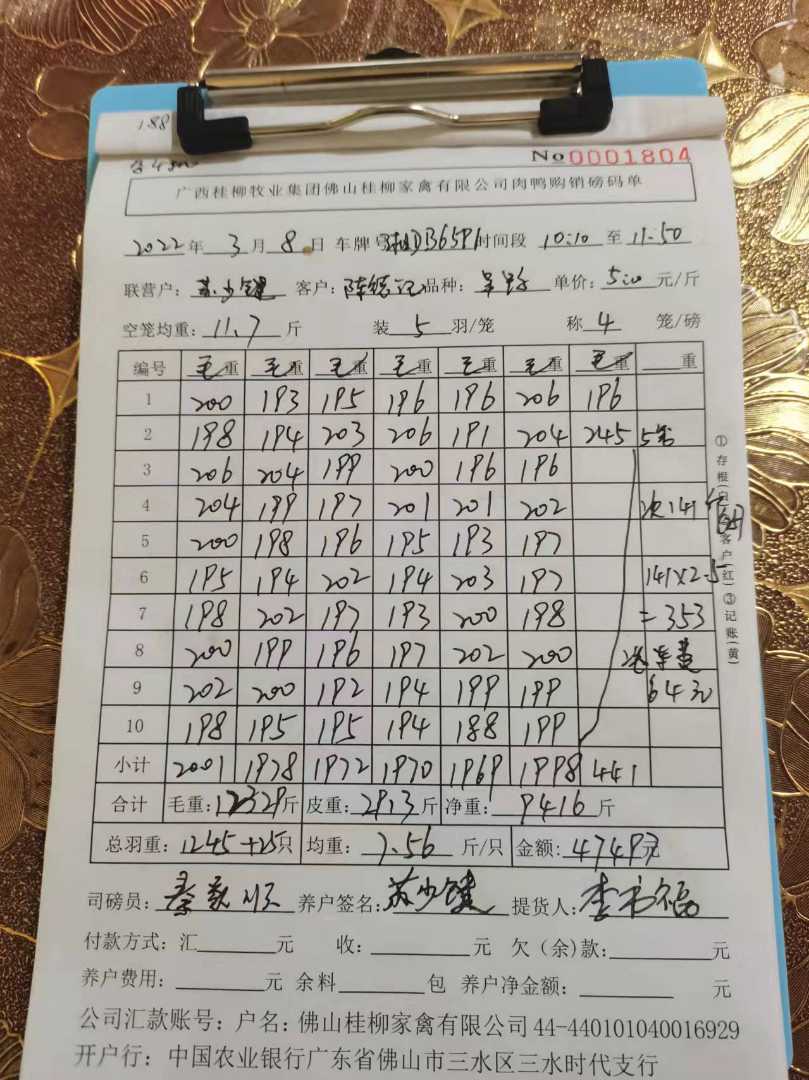 188
No 0001804
广西桂柳牧业集团佛山桂柳家禽有限公司肉鸭购销磅码单
2022年 3月 8日 车牌号 时间段 10:10 至 11:50
联营户： 客户： 品种： 单价：5.00 元/斤
空笼均重：11.7 斤 装 5 羽/笼 称 4 笼/磅
编号 毛重 毛重 毛重 毛重 毛重 毛重 毛重 重
1 200 193 195 196 196 206 196
2 198 194 203 206 191 204 245 5笼
3 206 204 199 200 196 196
4 204 199 197 201 201 202 次141
5 200 198 196 195 193 197
6 195 194 202 194 203 197 141×2.5
7 198 202 197 193 200 198 =353
8 200 199 196 197 202 200
9 202 200 192 194 199 199 64元
10 198 195 195 194 188 199
小计 2001 1978 1972 1970 1969 1998 441
合计 毛重：12329斤 皮重：2913斤 净重：9416斤
总羽重：1245+25只 均重：7.56 斤/只 金额：47491元
司磅员： 养户签名：苏少健 提货人：李书福
付款方式：汇 元 收： 元 欠（余）款： 元
养户费用： 元 余料 包 养户净金额： 元
公司汇款账号：户名：佛山桂柳家禽有限公司 44-440101040016929
开户行：中国农业银行广东省佛山市三水区三水时代支行
①存根(白) 客户(红)③记账(黄)